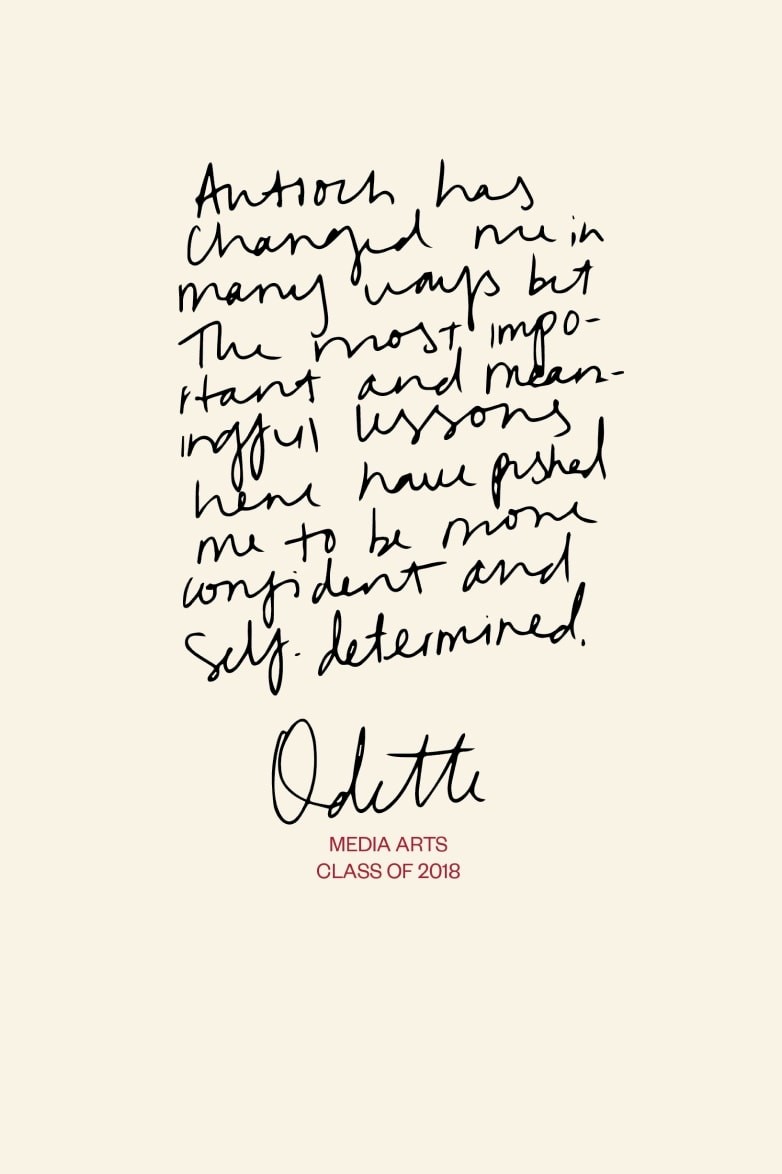 Antioch has
changed me in
many ways but
The most impo-
rtant and mean-
ingful lessons
here have pushed
me to be more
confident and
self-determined.
Odette
MEDIA ARTS
CLASS OF 2018